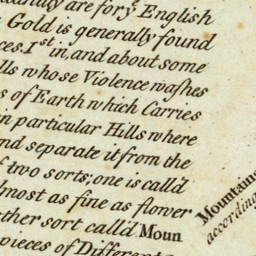 are for yͤ English
Gold is generally found
ces. 1st in, and about some
lls whose Violence washes
s of Earth which Carries
n particular Hills where
nd separate it from the
f two sorts; one is call'd
lmost as fine as flower
ther sort calld Moun
pieces of Different
Mountains
according